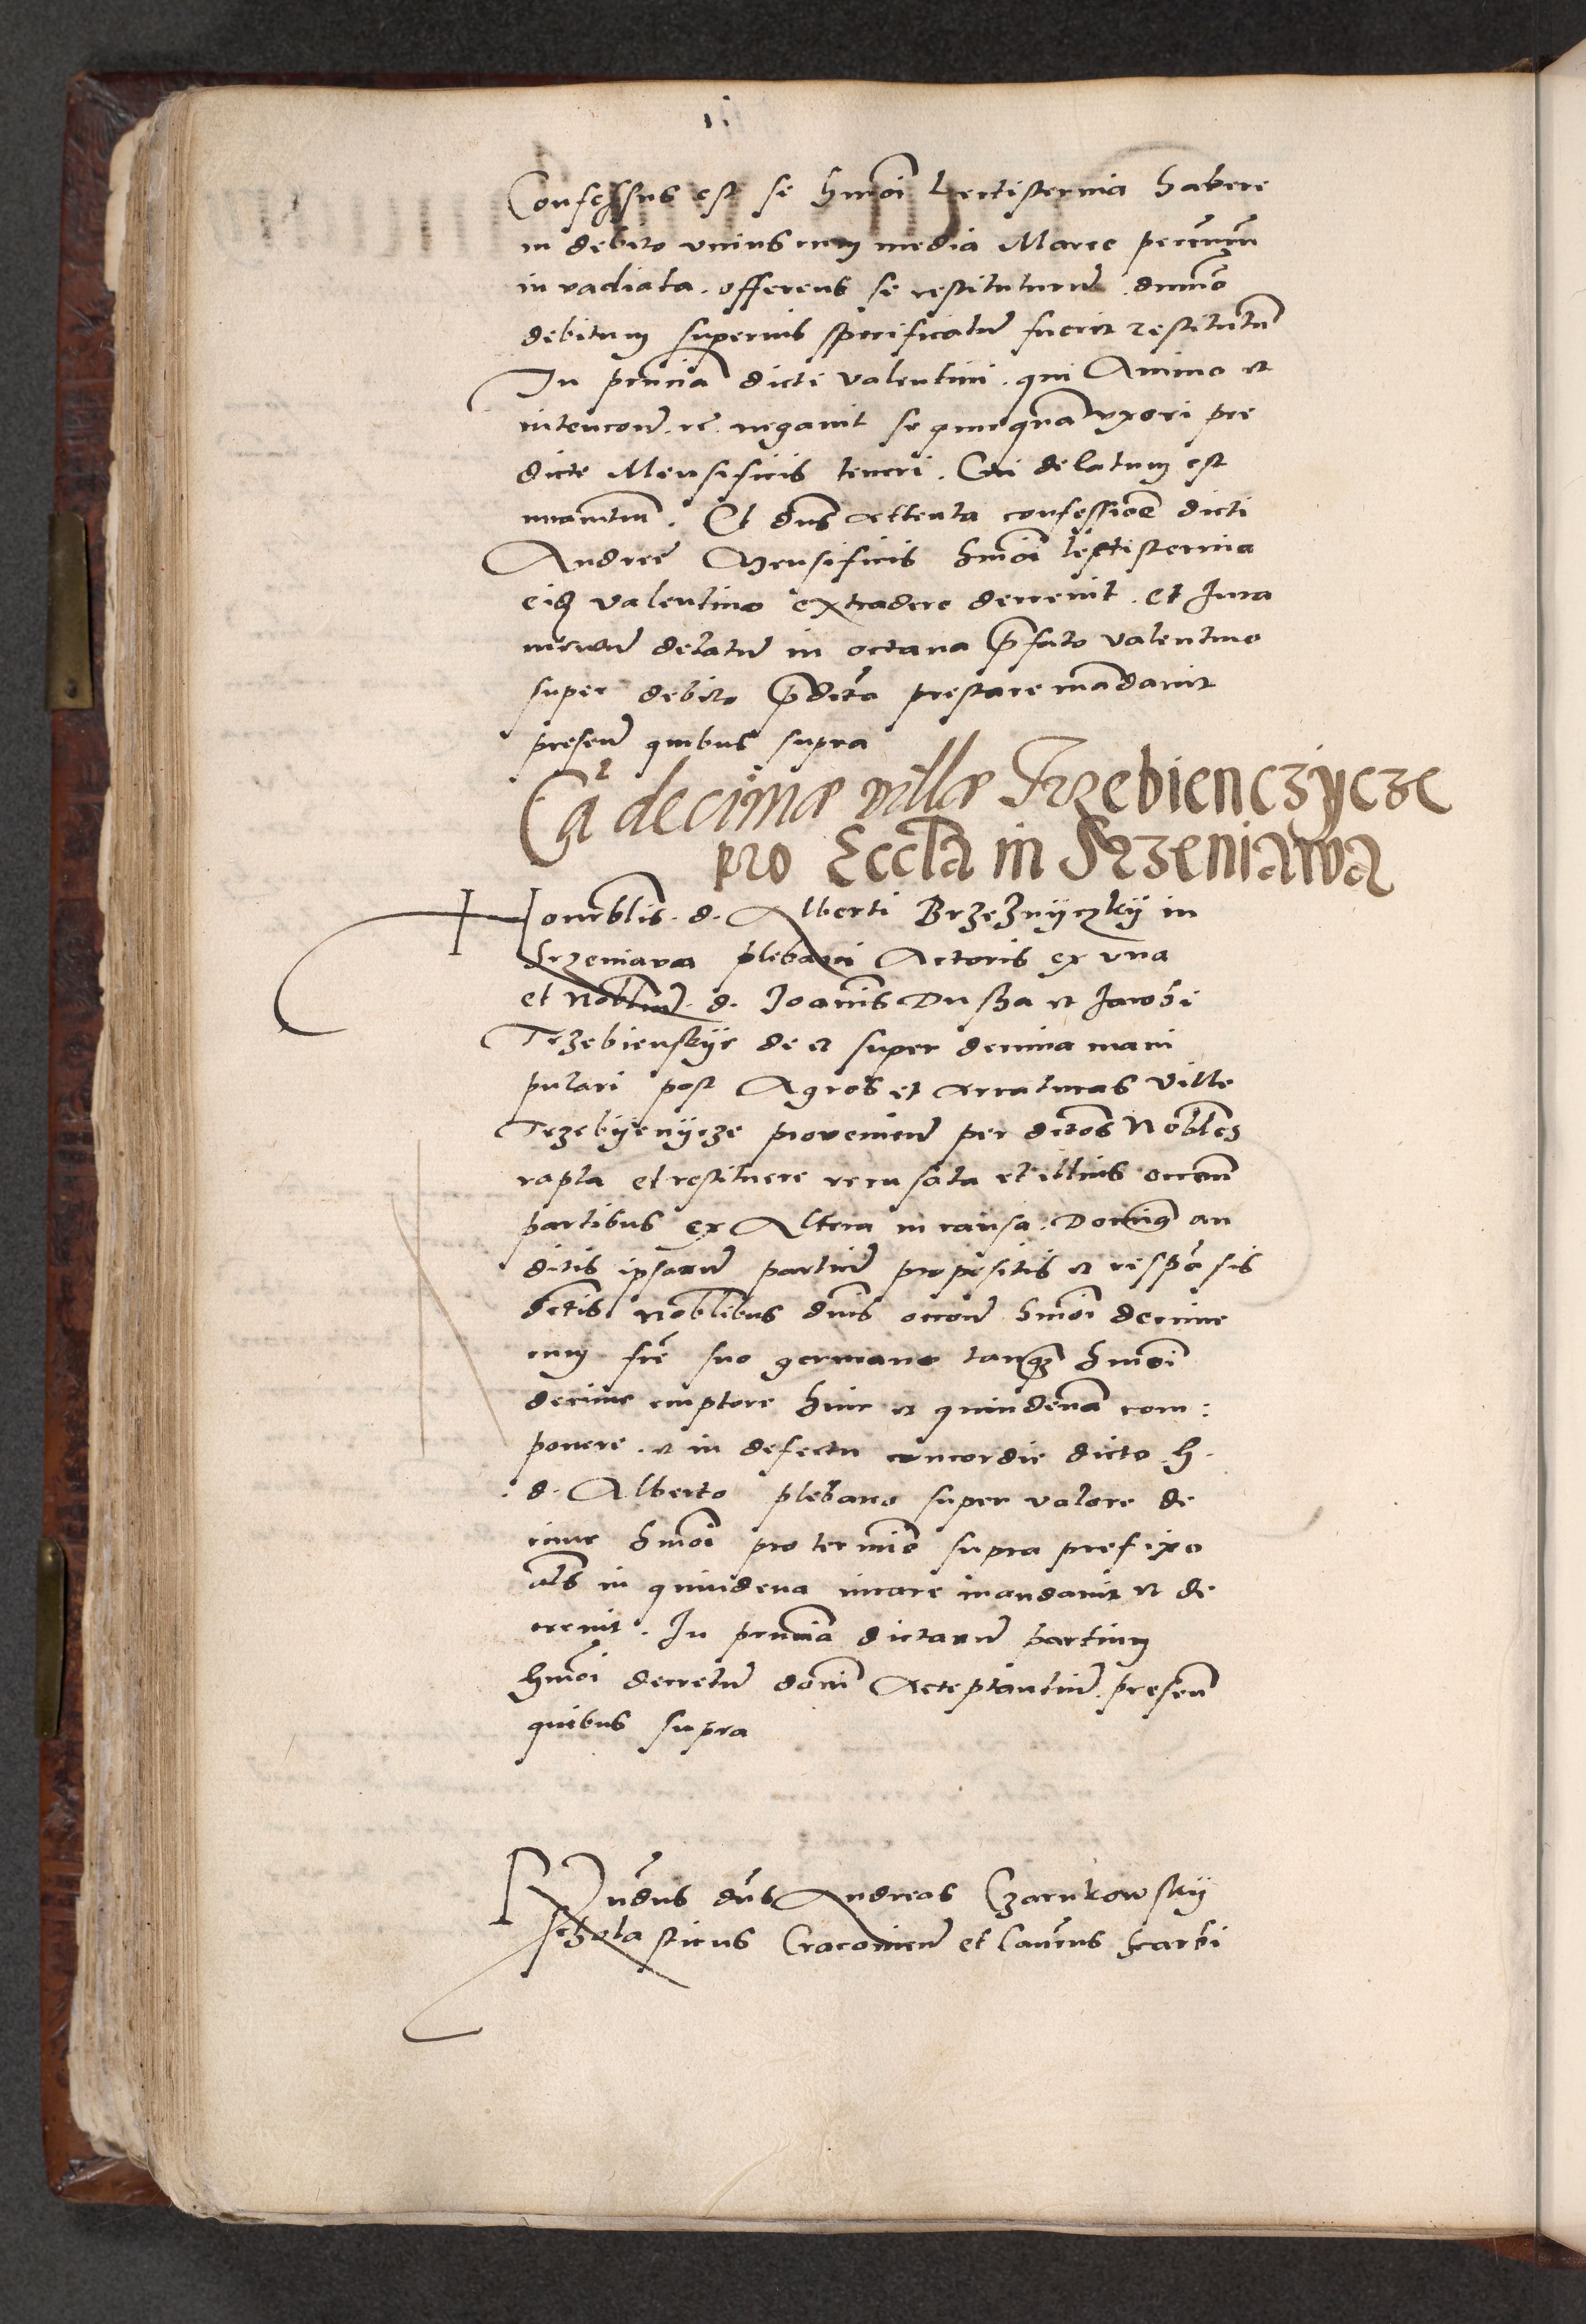 Confessus est se hmoi lectisternia habere
in debito unius cum media Marce pecuniarum
invadiata. offerens se restituturum dummodo
debitum superius specificatum fuerit restitutum
In pnciam dicti Valentini. qui Animo et
intencone. negavit se quicquam uxori pre
dicte Mensificis teneri. Cui delatum est
iuramentum. Et dns attenta confessione dicti
Andree Mensificis hmoi lectisternia
eidem Valentino extradere decrevit. et Iura
mentum delatum in octava prefato Valentino
super debito predicto prestare mandavit
presentibus quibus supra
Ca decimae villae Trzebienczycze
pro Eccla in Srzeniawa
Honorblis. d. Alberti Brzeznyczky in
Srzeniava plebani Actoris ex una
et Noblium. d. Joannis Dussa et Jacobi
Trzebienskye de et super decima mani
pulari post Agros et Arraturas Ville
Trzebyenycze proveniente per dictos Nobles
rapta et restituere recusata et illius occone
partibus ex Altera in causa. Dominus au
ditis ipsarum partium propositis et responsis
dictis noblibus dnis occone hmoi decime
cum fre suo germano tanquam hmoi
decime emptore hinc et quindenam com:
ponere. et in defectu concordie dicto h.
d. Alberto plebano super valore de
cime hmoi pro termino supra prefixo
als in quindena iurare mandavit et de
crevit. In pncia dictarum partium
hmoi decretum domini Acceptantium. presen
quibus supra
Rndus dns Andreas Czarnkowsky
scholasticus Cracovien et Laurens Scarbi